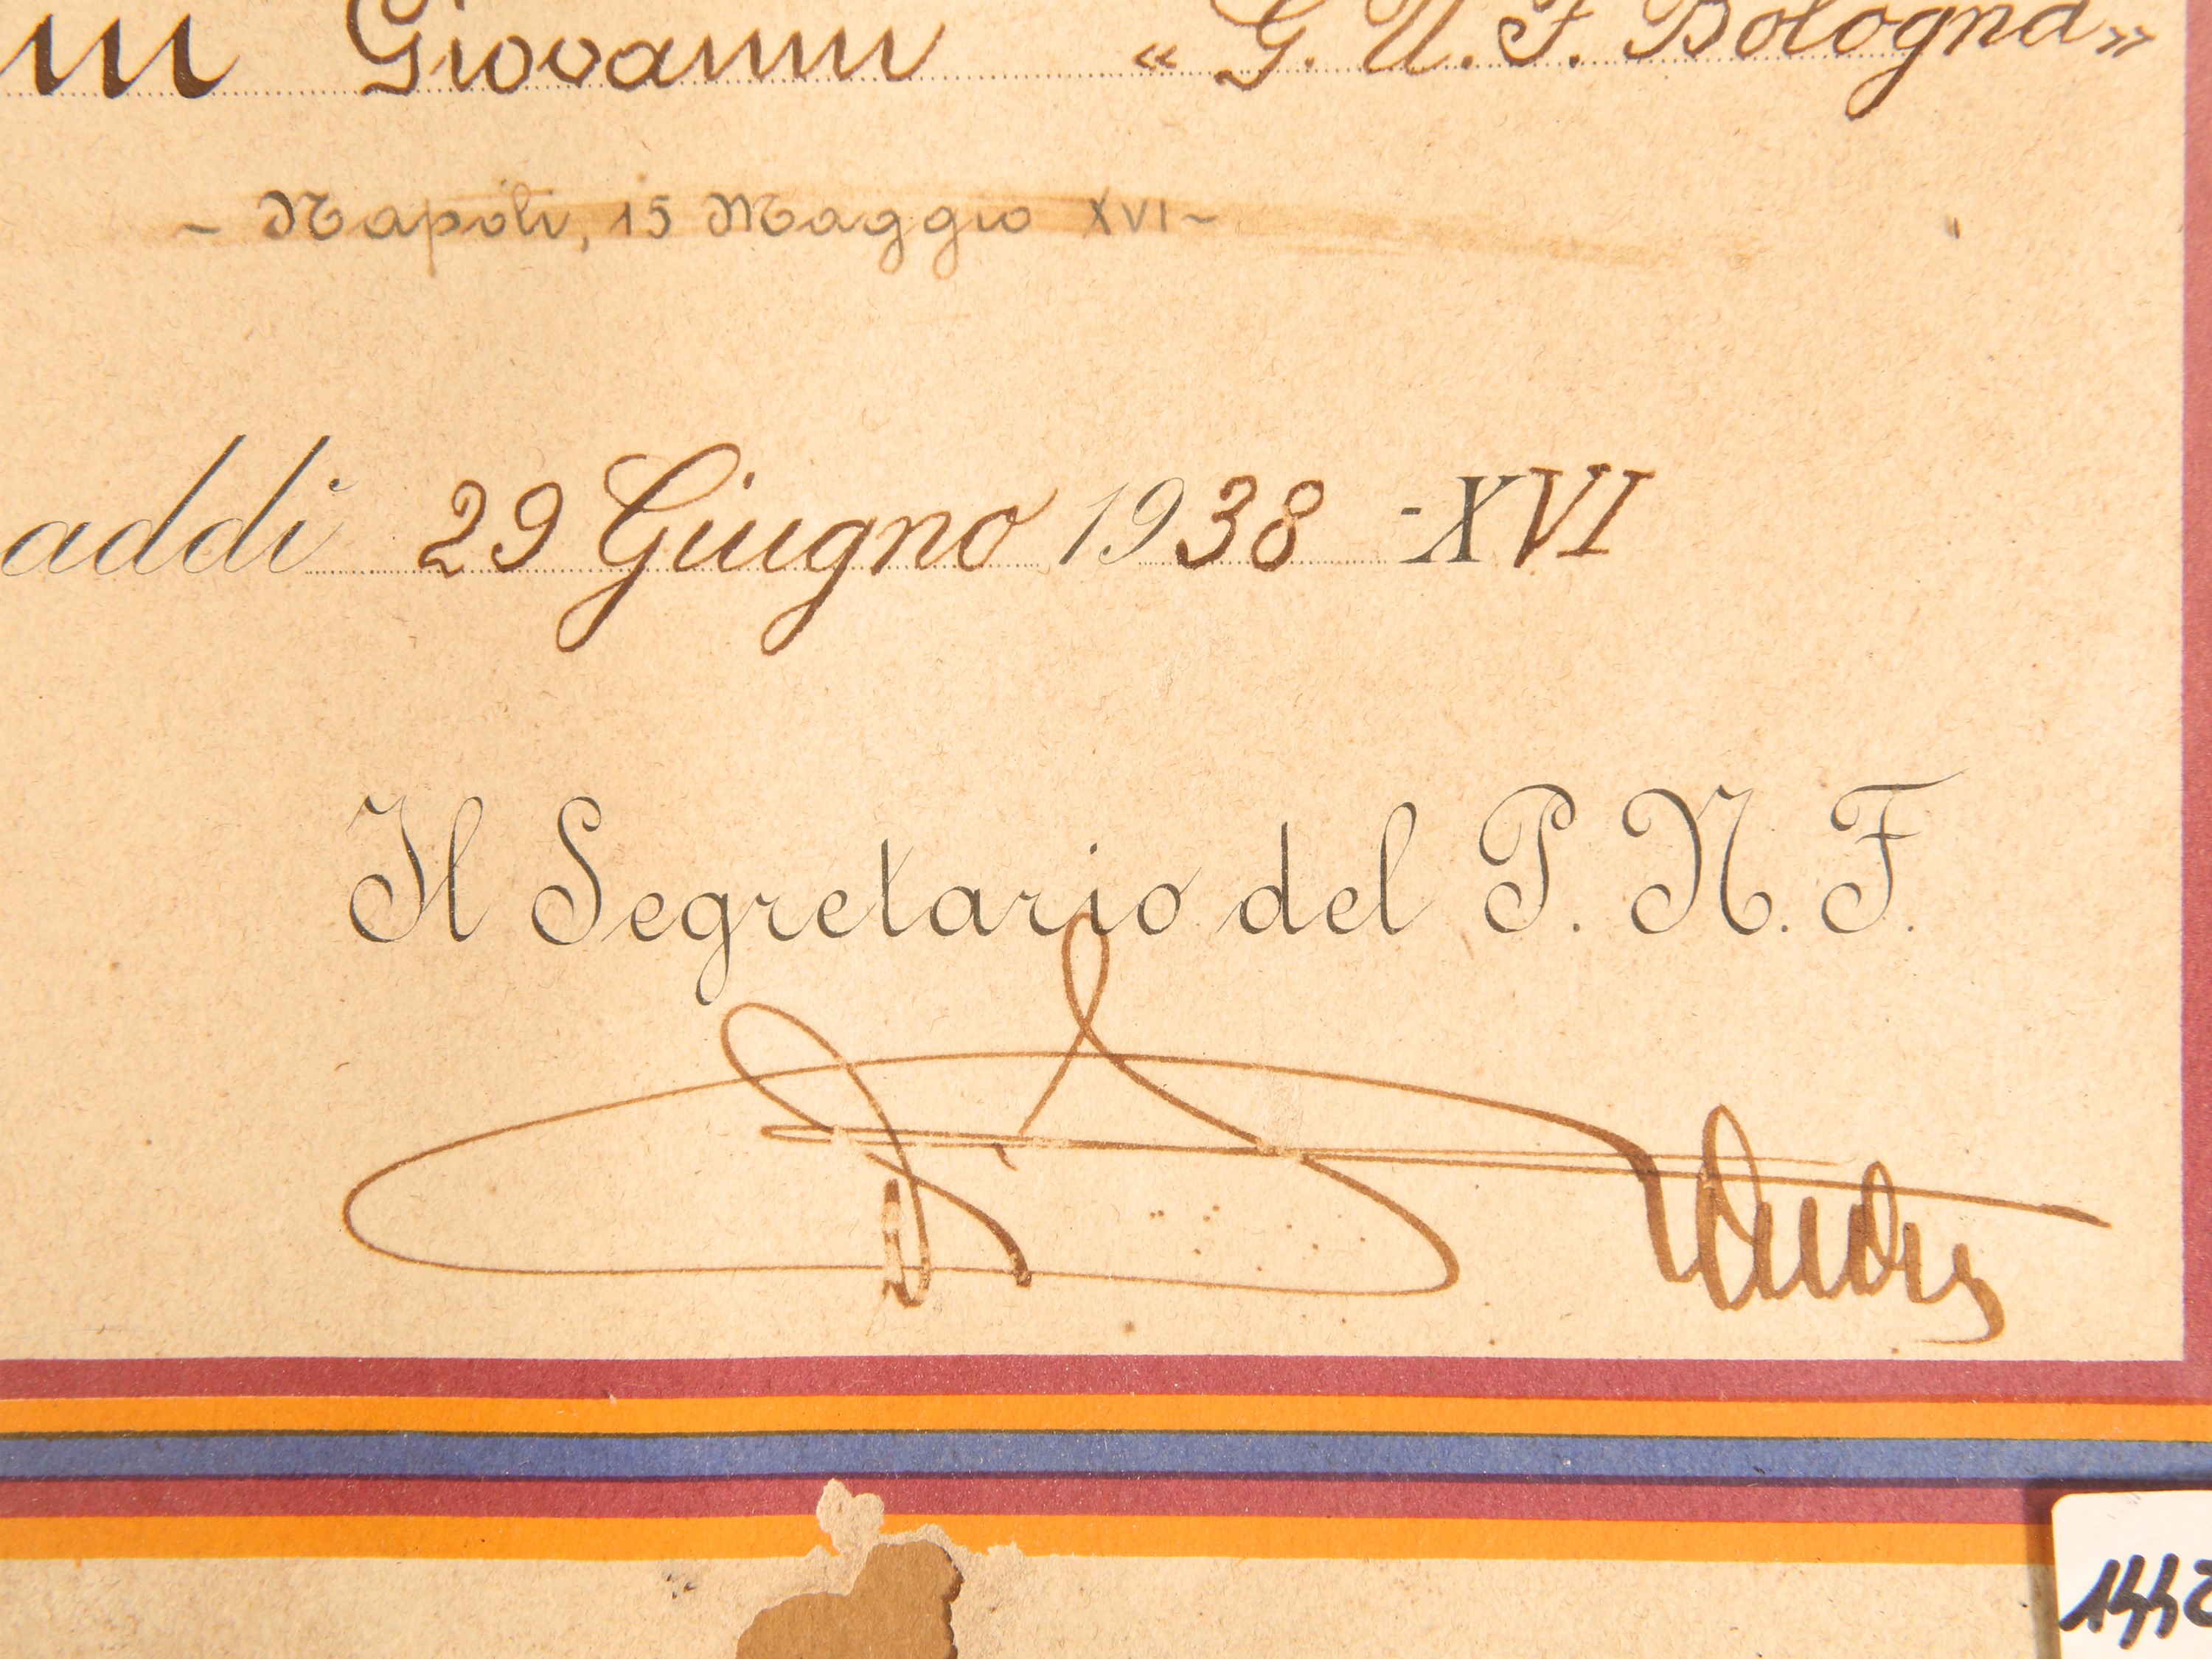 Giovanni « G. U. F. Bologna »
~ Napoli, 15 Maggio XVI ~
addi 29 Giugno 1938 - XVI
Il Segretario del P. N. F.